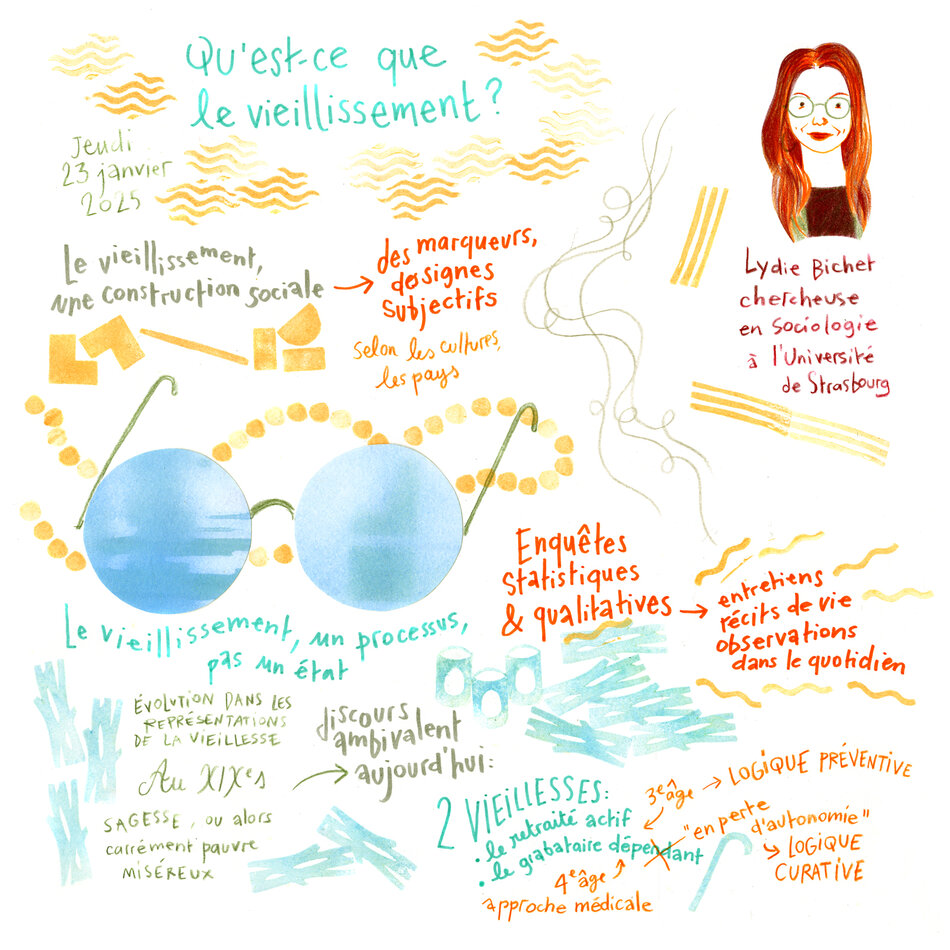 Qu'est-ce que
le vieillissement ?
Jeudi
23 janvier
2025
Lydie Bichet
chercheuse
en sociologie
à l'Université
de Strasbourg
Le vieillissement,
une construction sociale →
des marqueurs,
des signes
subjectifs
selon les cultures,
les pays
Le vieillissement, un processus,
pas un état
Enquêtes
statistiques
& qualitatives →
entretiens
récits de vie
observations
dans le quotidien
ÉVOLUTION DANS LES
REPRÉSENTATIONS
DE LA VIEILLESSE
Au XIXe s
SAGESSE, ou alors
carrément pauvre
MISÉREUX
→ discours
ambivalent
aujourd'hui :
2 VIEILLESSES :
• le retraité actif
• le grabataire dépendant
3e âge → LOGIQUE PRÉVENTIVE
"en perte
d'autonomie"
→ LOGIQUE
CURATIVE
4e âge
approche médicale